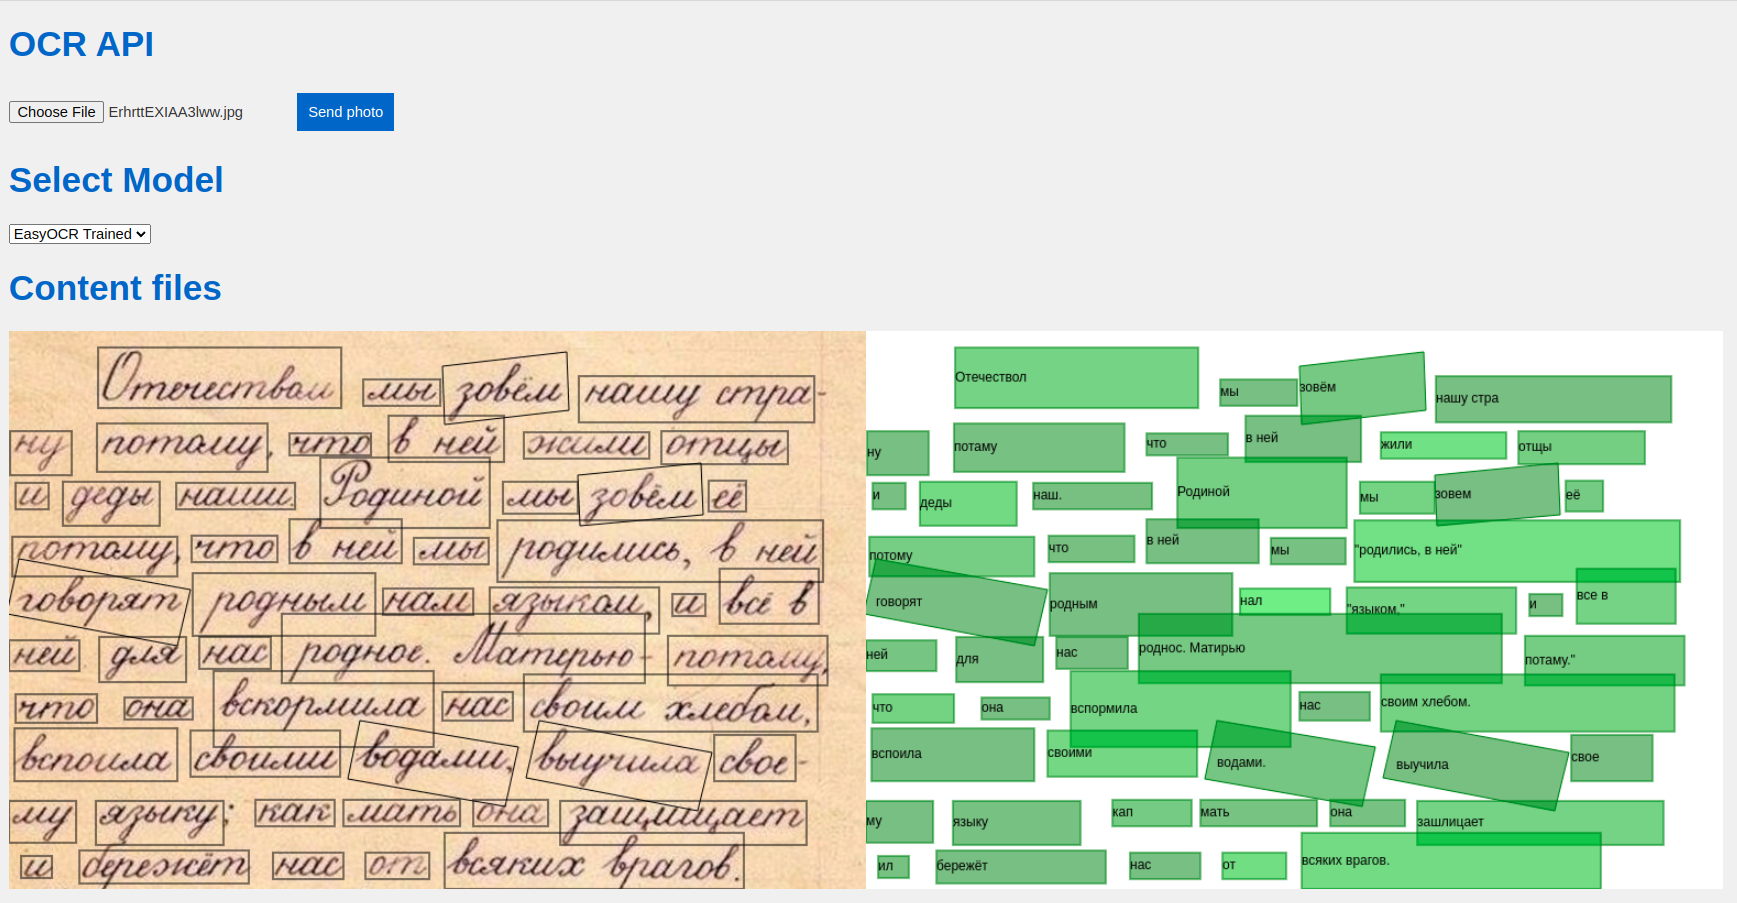 OCR API
Choose File ErhrttEXIAA3lww.jpg Send photo
Select Model
EasyOCR Trained
Content files
Отечеством мы зовём нашу стра-
ну потому, что в ней жили отцы
и деды наши. Родиной мы зовём её
потому, что в ней мы родились, в ней
говорят родным нам языком, и всё в
ней для нас родное. Матерью- потому,
что она вскормила нас своим хлебом,
вспоила своими водами, выучила свое-
му языку; как мать она защищает
и бережёт нас от всяких врагов.
Отечествол мы зовём нашу стра
ну потаму что в ней жили отщы
и деды наш. Родиной мы зовем её
потому что в ней мы "родились, в ней"
говорят родным нал "языком." и все в
ней для нас роднос. Матирью потаму."
что она вспормила нас своим хлебом.
вспоила своими водами. выучила свое
му языку кап мать она зашлицает
ил бережёт нас от всяких врагов.